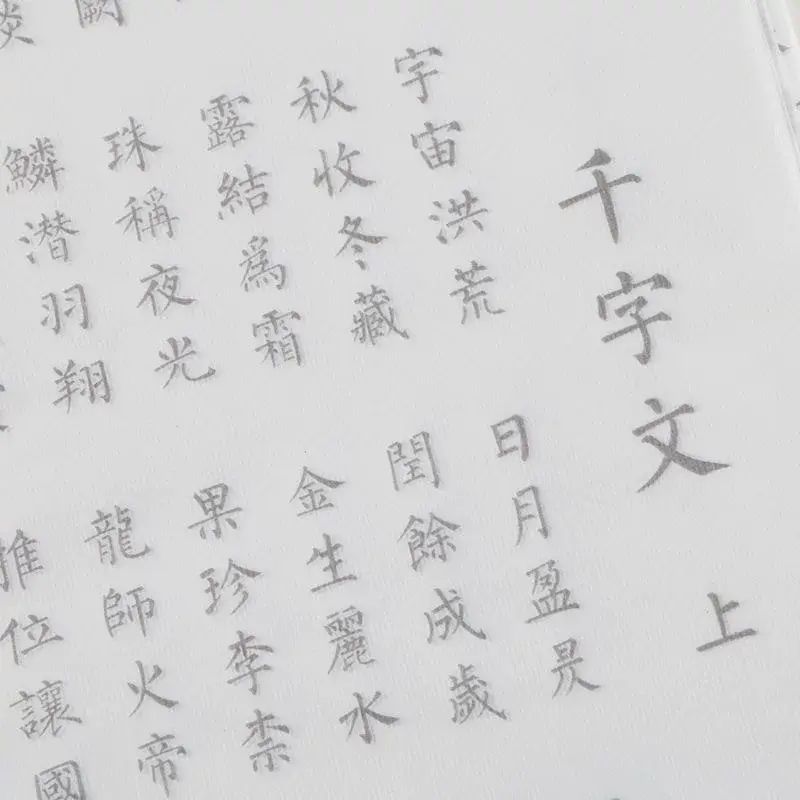 千字文 上
宇宙洪荒 日月盈昃
秋收冬藏 閏餘成歲
露結爲霜 金生麗水
闕 珠稱夜光 果珍李柰
淡 鱗潜羽翔 龍師火帝
推位讓國